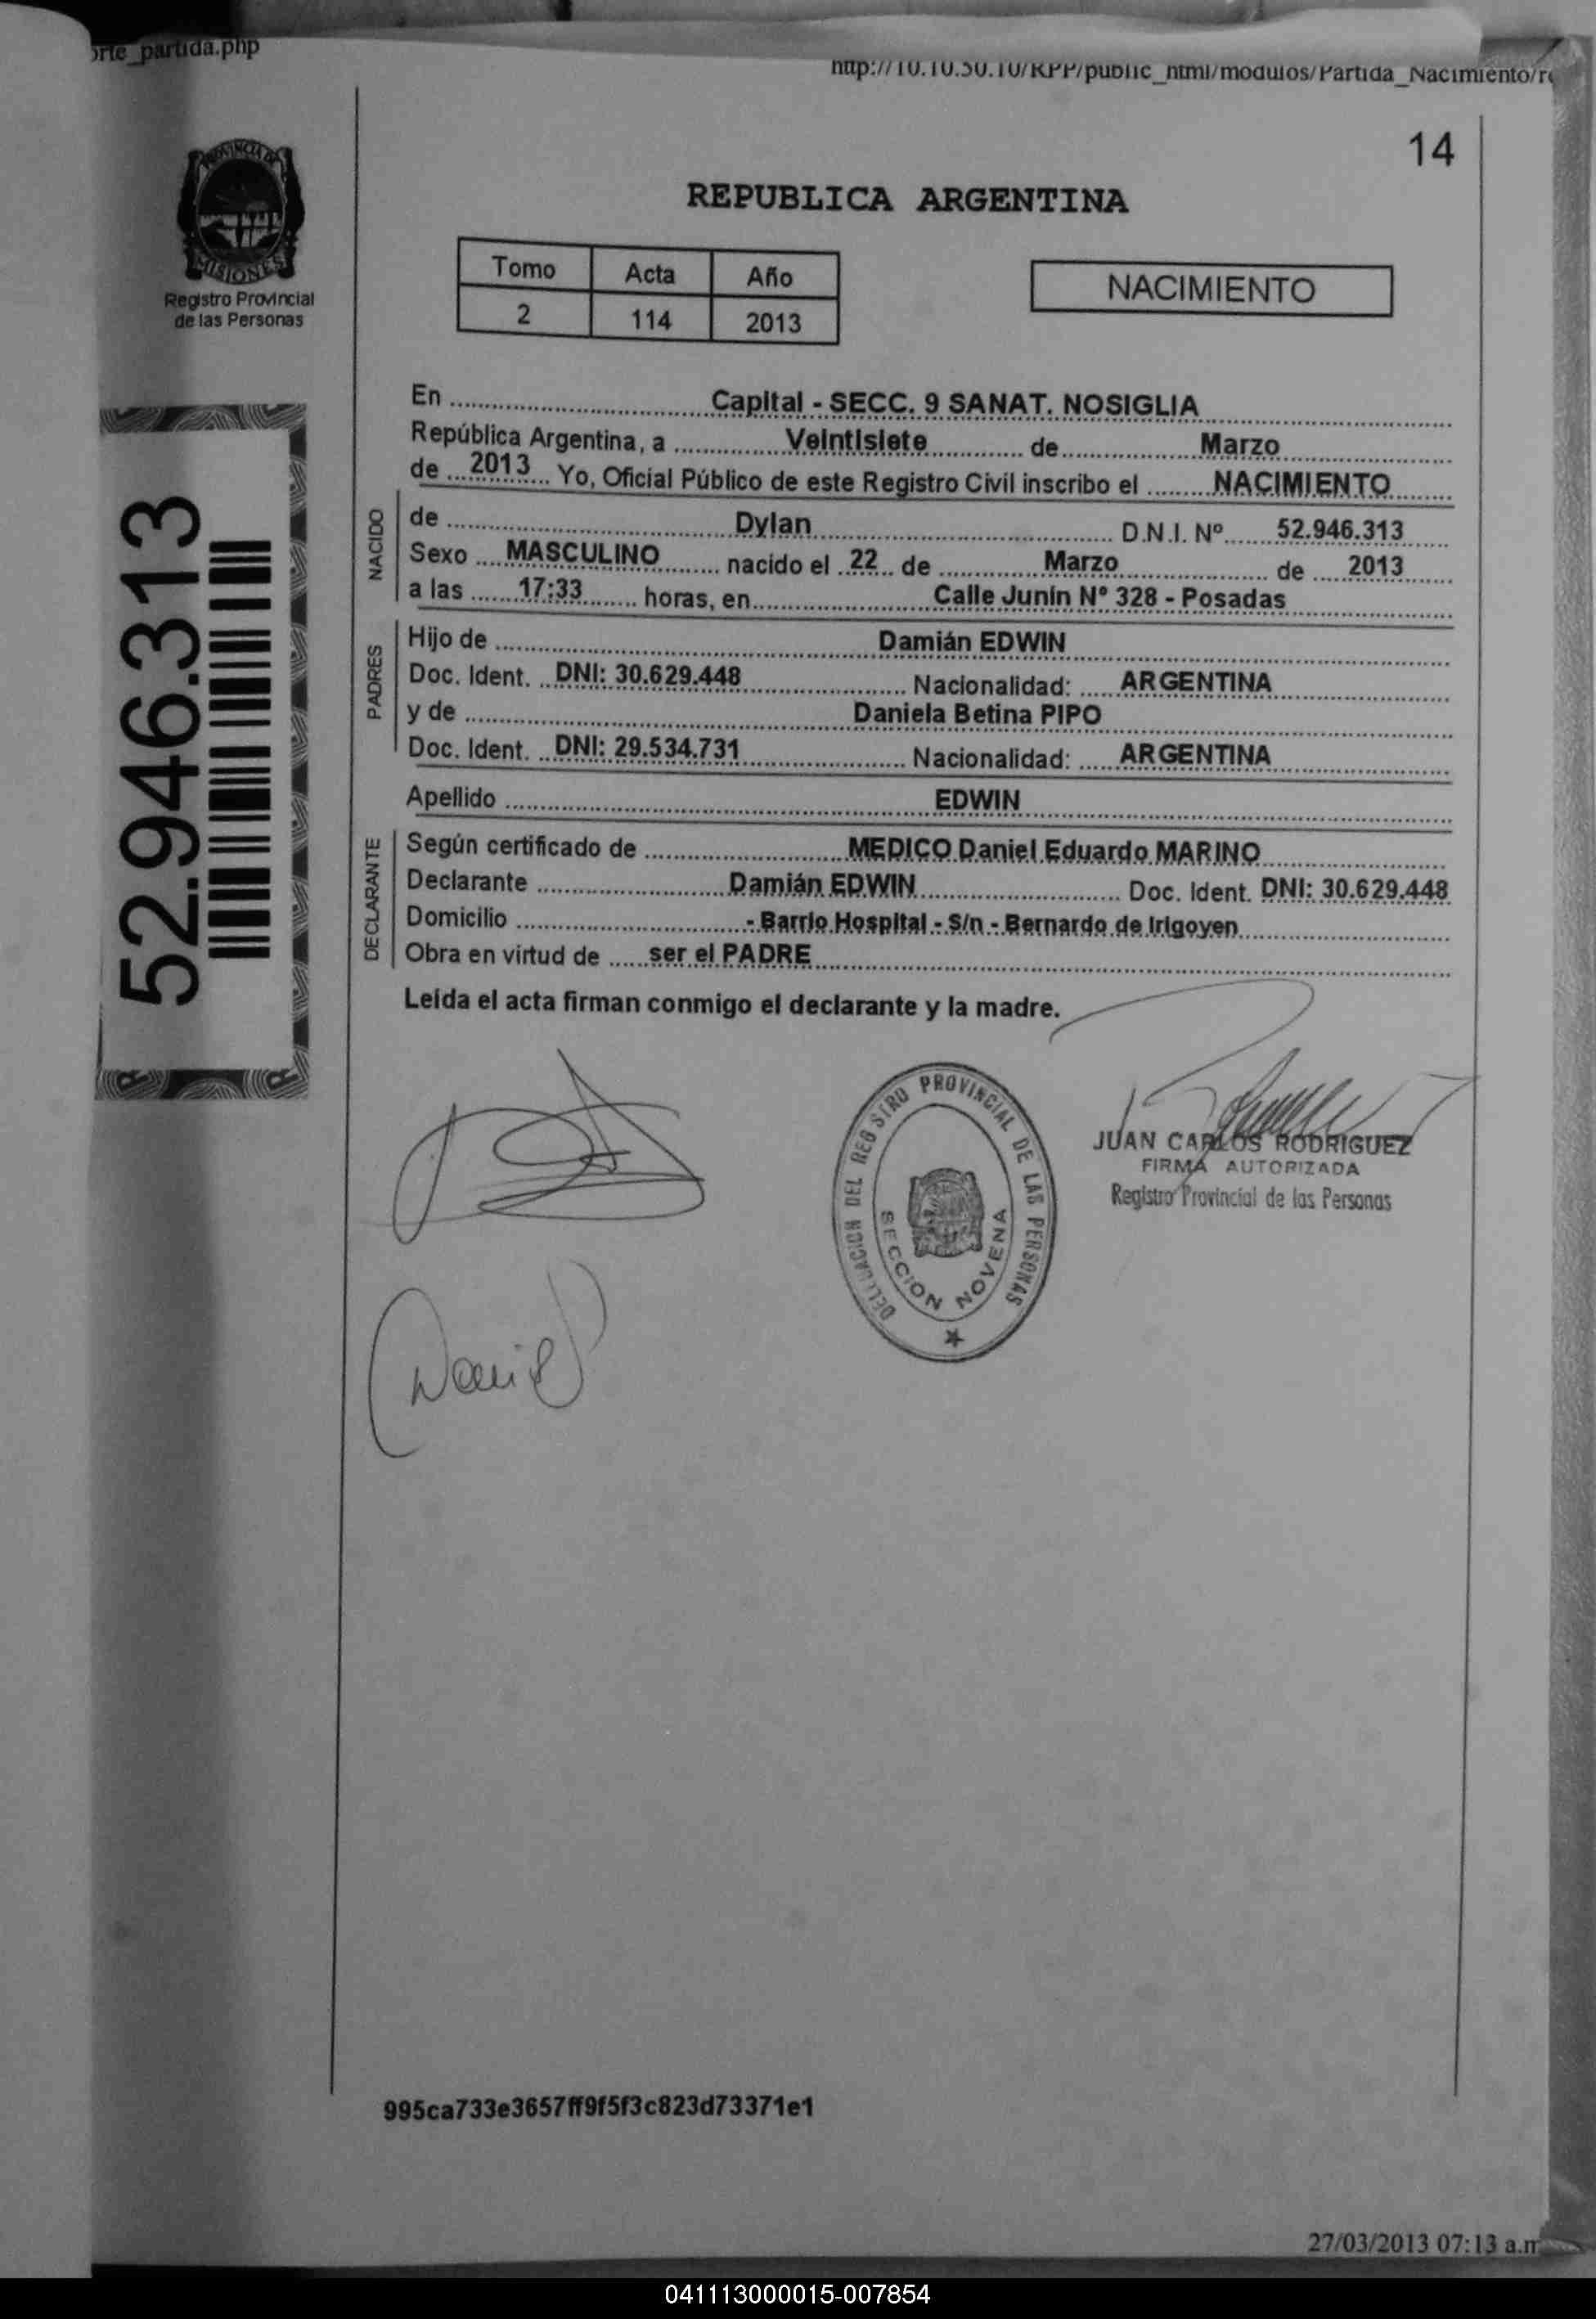 orte_partida.php
http://10.10.50.10/RPP/public_html/modulos/Partida_Nacimiento/re
14
PROVINCIA DE
MISIONES
Registro Provincial
de las Personas
REPUBLICA ARGENTINA
Tomo Acta Año
2 114 2013
NACIMIENTO
52.946.313
En Capital - SECC. 9 SANAT. NOSIGLIA
República Argentina, a Veintisiete de Marzo
de 2013 Yo, Oficial Público de este Registro Civil inscribo el NACIMIENTO
NACIDO
de Dylan D.N.I. Nº 52.946.313
Sexo MASCULINO nacido el 22 de Marzo de 2013
a las 17:33 horas, en Calle Junín Nº 328 - Posadas
PADRES
Hijo de Damián EDWIN
Doc. Ident. DNI: 30.629.448 Nacionalidad: ARGENTINA
y de Daniela Betina PIPO
Doc. Ident. DNI: 29.534.731 Nacionalidad: ARGENTINA
Apellido EDWIN
DECLARANTE
Según certificado de MEDICO Daniel Eduardo MARINO
Declarante Damián EDWIN Doc. Ident. DNI: 30.629.448
Domicilio - Barrio Hospital - S/n - Bernardo de Irigoyen
Obra en virtud de ser el PADRE
Leída el acta firman conmigo el declarante y la madre.
DELEGACION DEL REGISTRO PROVINCIAL DE LAS PERSONAS
SECCION NOVENA
JUAN CARLOS RODRIGUEZ
FIRMA AUTORIZADA
Registro Provincial de las Personas
995ca733e3657ff9f5f3c823d73371e1
27/03/2013 07:13 a.m
041113000015-007854